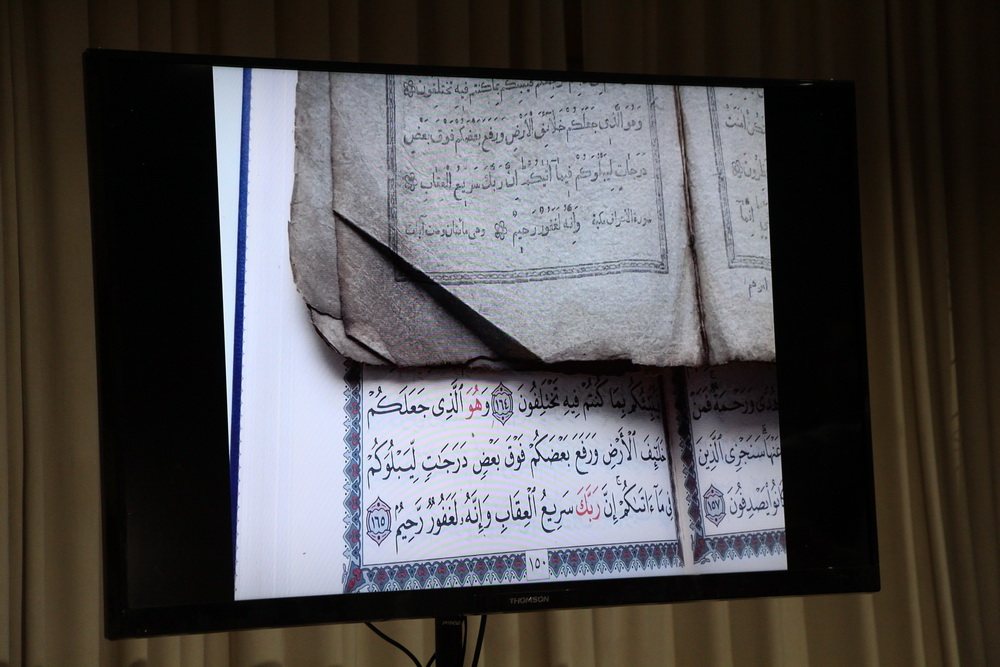 فيه تختلفون
وهو الذى جعلكم خلائق الارض ورفع بعضكم فوق بعض
درجات ليبلوكم فيما آتيكم ان ربك سريع العقاب
وانه لغفور رحيم
سورة الاعراف مكية
وهى مائتان وست آيات
بِمَا كُنتُمْ فِيهِ تَخْتَلِفُونَ ١٦٤ وَهُوَ الَّذِى جَعَلَكُمْ
خَلَٰٓئِفَ الْأَرْضِ وَرَفَعَ بَعْضَكُمْ فَوْقَ بَعْضٍ دَرَجَٰتٍ لِّيَبْلُوَكُمْ
فِى مَآ ءَاتَىٰكُمْ إِنَّ رَبَّكَ سَرِيعُ الْعِقَابِ وَإِنَّهُۥ لَغَفُورٌ رَّحِيمٌ ١٦٥
١٥٠
وَرَحْمَةٌ فَمَنْ
سَنَجْزِى الَّذِينَ
يَصْدِفُونَ ١٥٧
THOMSON